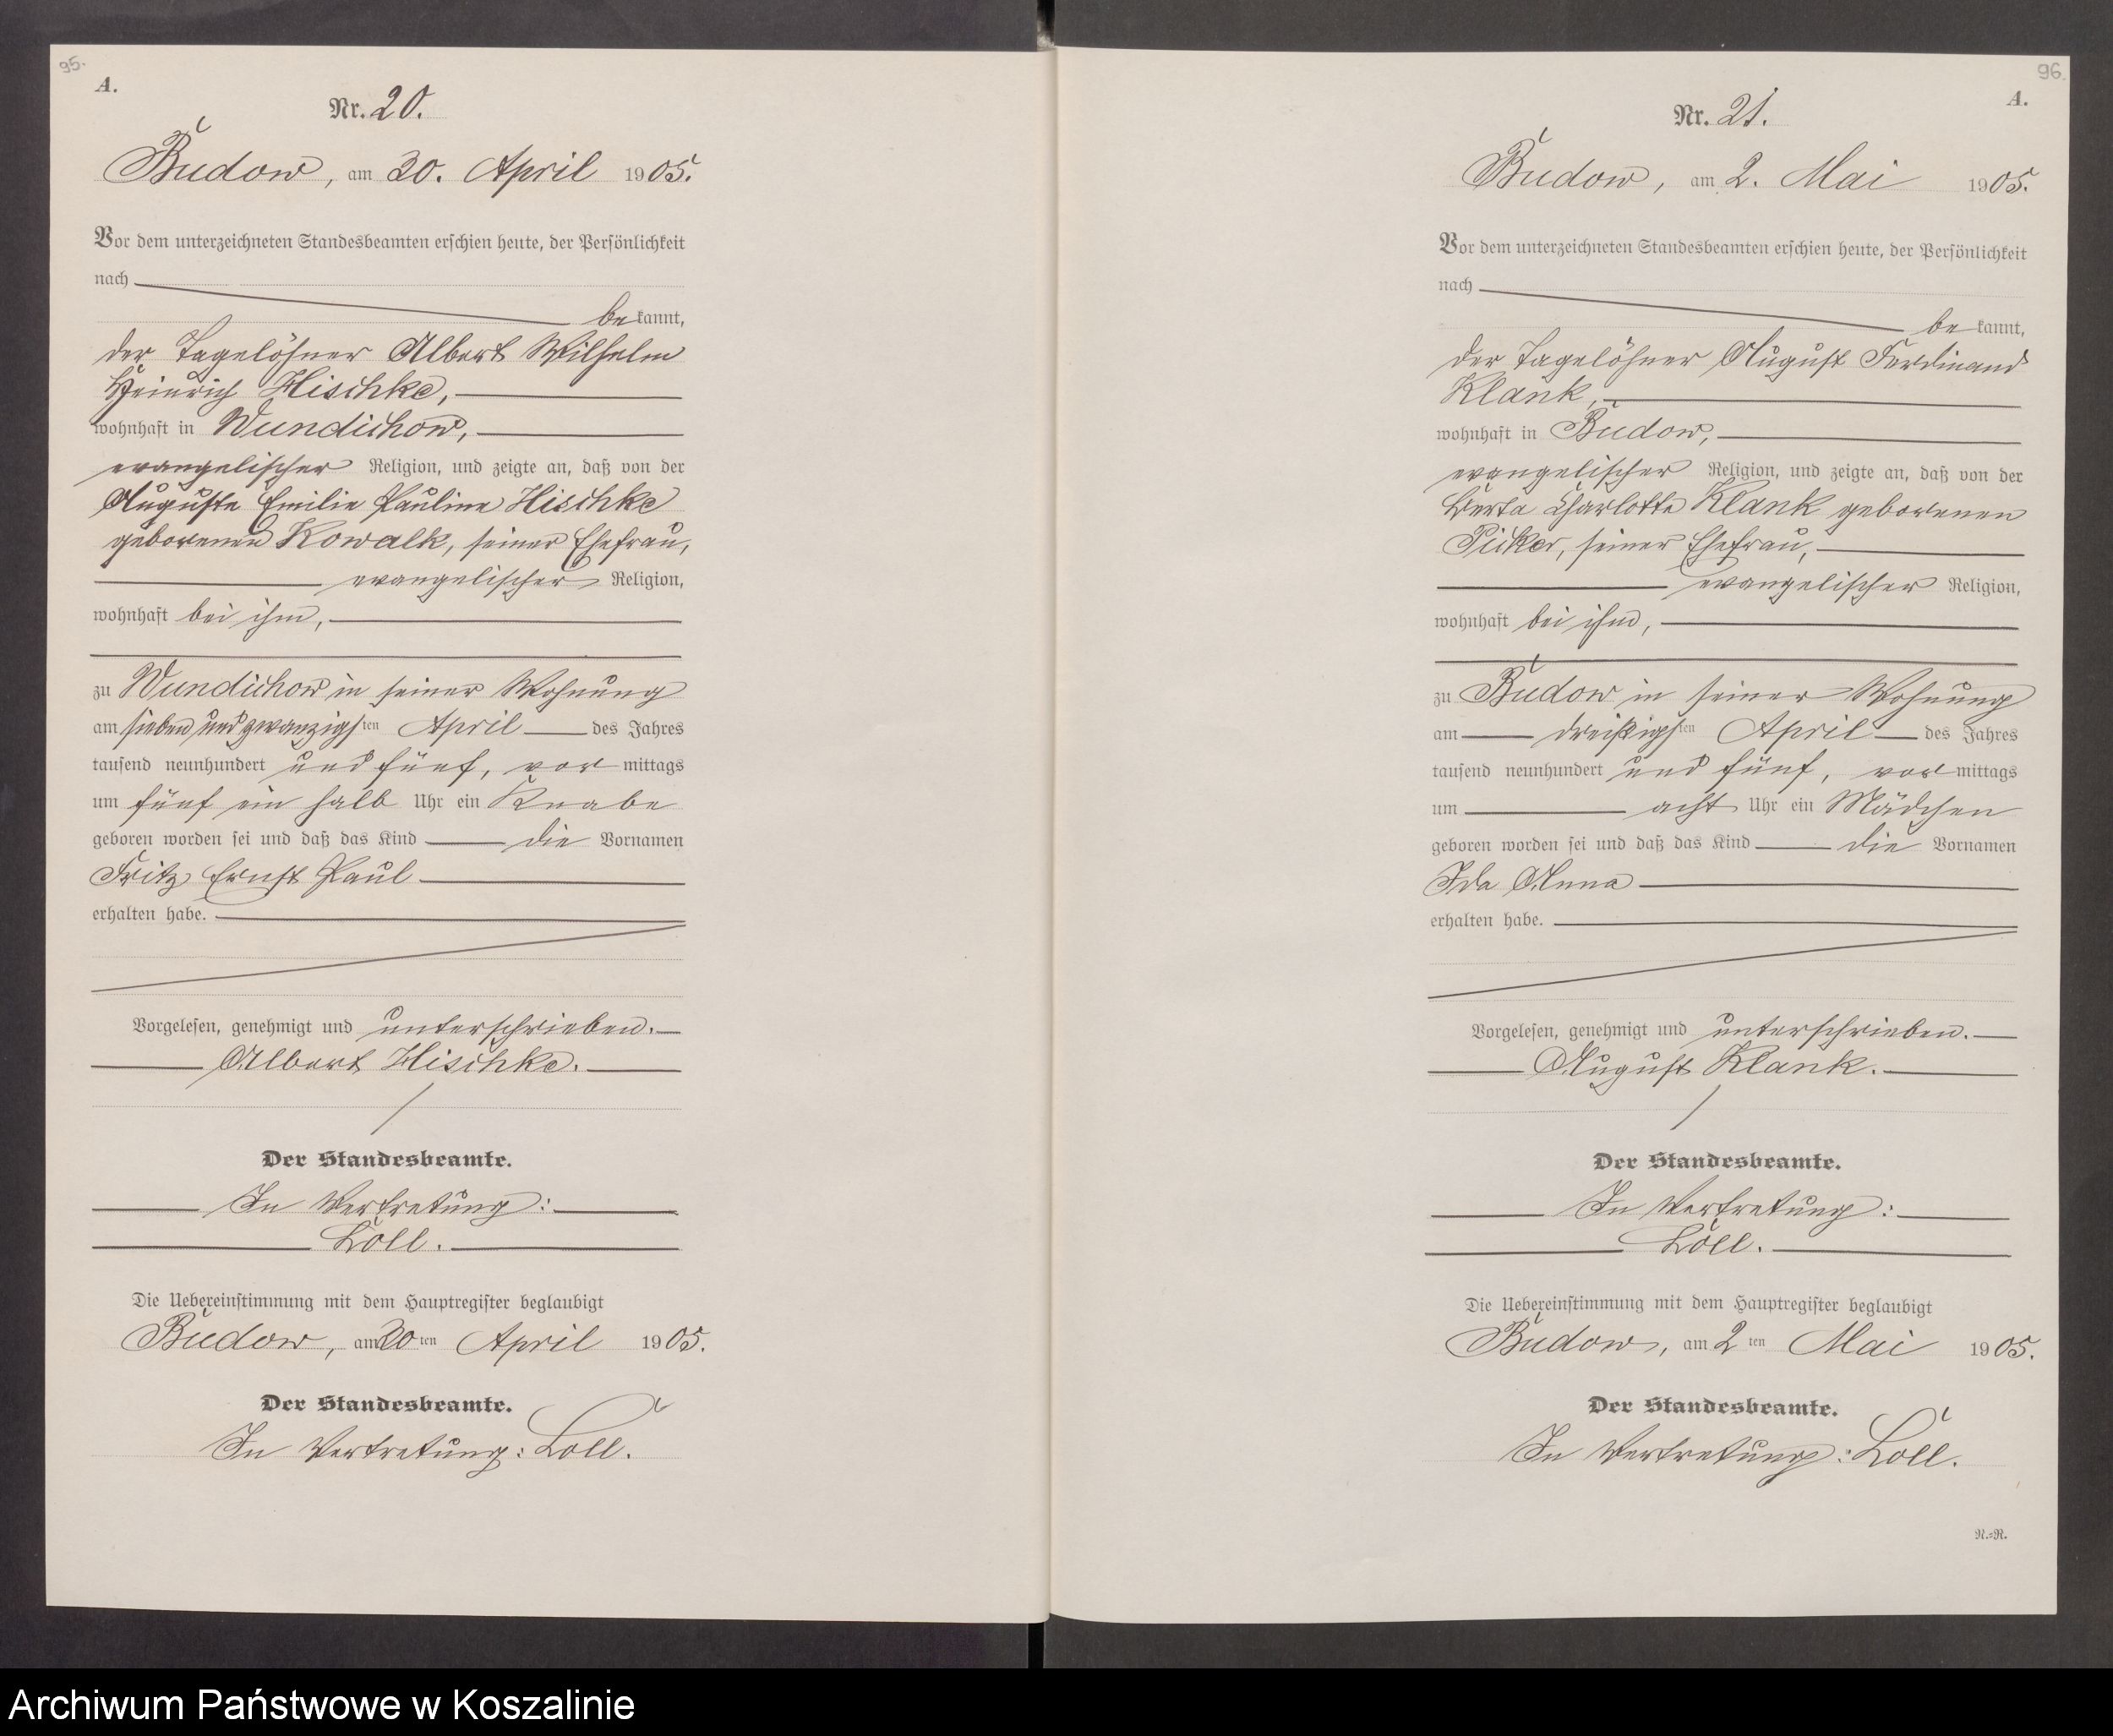 95.
A.
Nr. 20.
Budow, am 30. April 1905.
Vor dem unterzeichneten Standesbeamten erschien heute, der Persönlichkeit
nach
bekannt,
der Tagelöhner Albert Wilhelm
Heinrich Hischke,
wohnhaft in Wundichow,
evangelischer Religion, und zeigte an, daß von der
Auguste Emilie Pauline Hischke
geborenen Kowalk, seiner Ehefrau,
evangelischer Religion,
wohnhaft bei ihm,
zu Wundichow in seiner Wohnung
am sieben und zwanzigsten April des Jahres
tausend neunhundert und fünf, vormittags
um fünf ein halb Uhr ein Knabe
geboren worden sei und daß das Kind die Vornamen
Fritz Ernst Paul
erhalten habe.
Vorgelesen, genehmigt und unterschrieben.
Albert Hischke.
Der Standesbeamte.
In Vertretung:
Loll.
Die Uebereinstimmung mit dem Hauptregister beglaubigt
Budow, am 30ten April 1905.
Der Standesbeamte.
In Vertretung: Loll.
96.
A.
Nr. 21.
Budow, am 2. Mai 1905.
Vor dem unterzeichneten Standesbeamten erschien heute, der Persönlichkeit
nach
bekannt,
der Tagelöhner August Ferdinand
Klank,
wohnhaft in Budow,
evangelischer Religion, und zeigte an, daß von der
Berta Charlotte Klank geborenen
Piiker, seiner Ehefrau,
evangelischer Religion,
wohnhaft bei ihm,
zu Budow in seiner Wohnung
am dreißigsten April des Jahres
tausend neunhundert und fünf, vormittags
um acht Uhr ein Mädchen
geboren worden sei und daß das Kind die Vornamen
Ida Anna
erhalten habe.
Vorgelesen, genehmigt und unterschrieben.
August Klank.
Der Standesbeamte.
In Vertretung:
Loll.
Die Uebereinstimmung mit dem Hauptregister beglaubigt
Budow, am 2ten Mai 1905.
Der Standesbeamte.
In Vertretung: Loll.
N.=R.
Archiwum Państwowe w Koszalinie